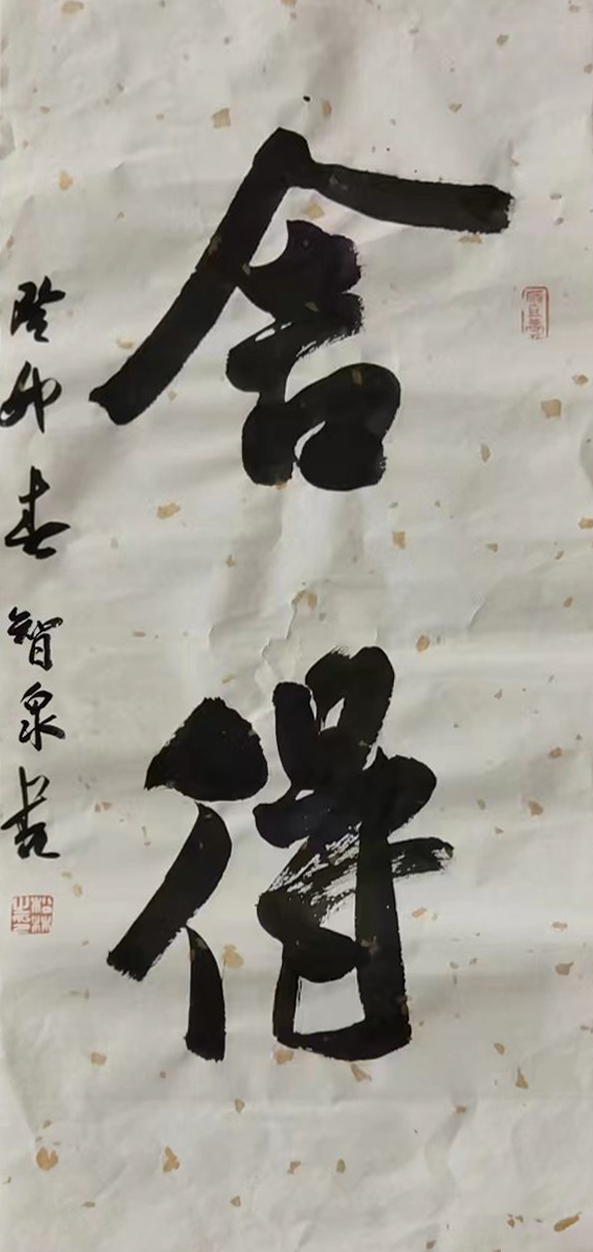 舍得
癸卯春 智泉书